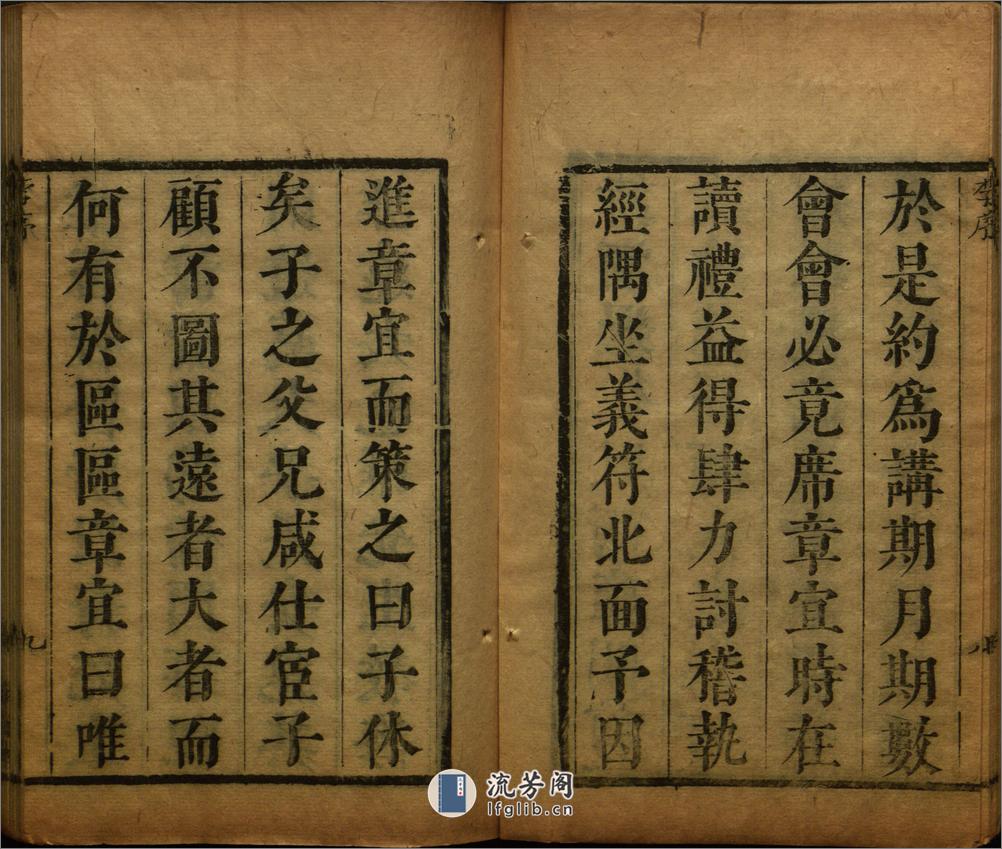 於是約爲講期月期數
會會必竟席章宜時在
讀禮益得肆力討稽執
經隅坐義符北面予因
進章宜而策之曰子休
矣子之父兄咸仕宦子
顧不圖其遠者大者而
何有於區區章宜曰唯
九
流芳阁
lfglib.cn